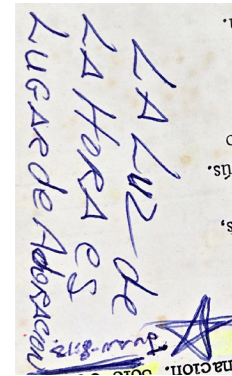 LA LUZ de
LA HORA es
LUGAR de Adoracon
Juan-8:12
nacion.